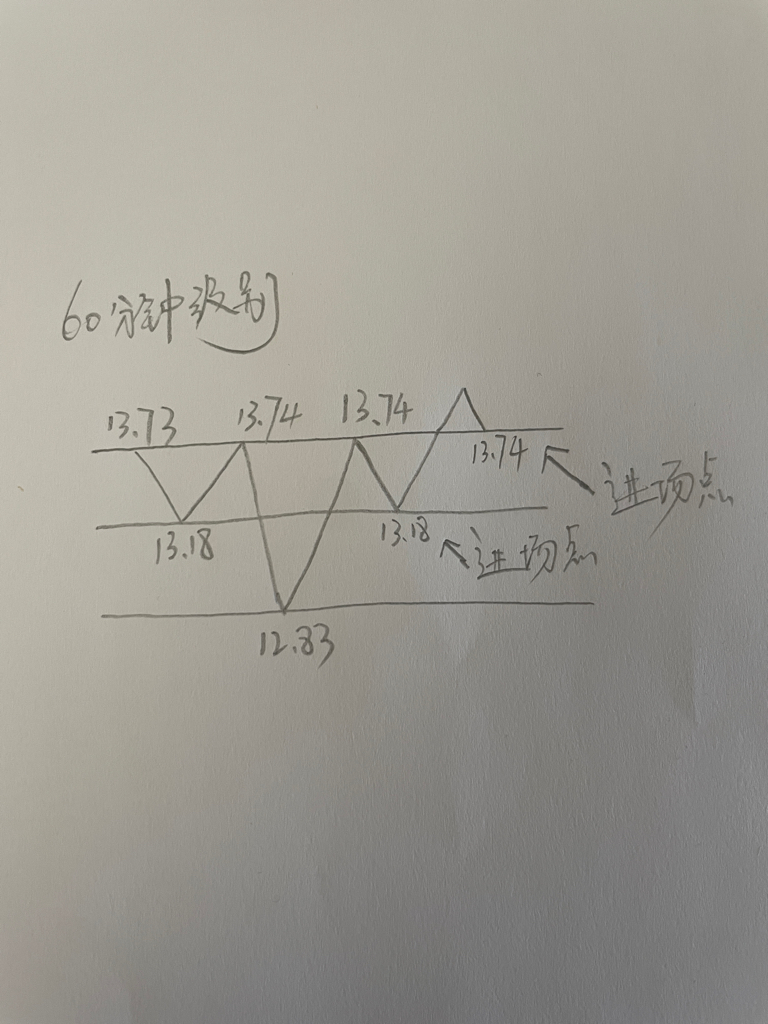 60分钟级别
13.73 13.74 13.74
13.74
进场点
13.18 13.18
进场点
12.83